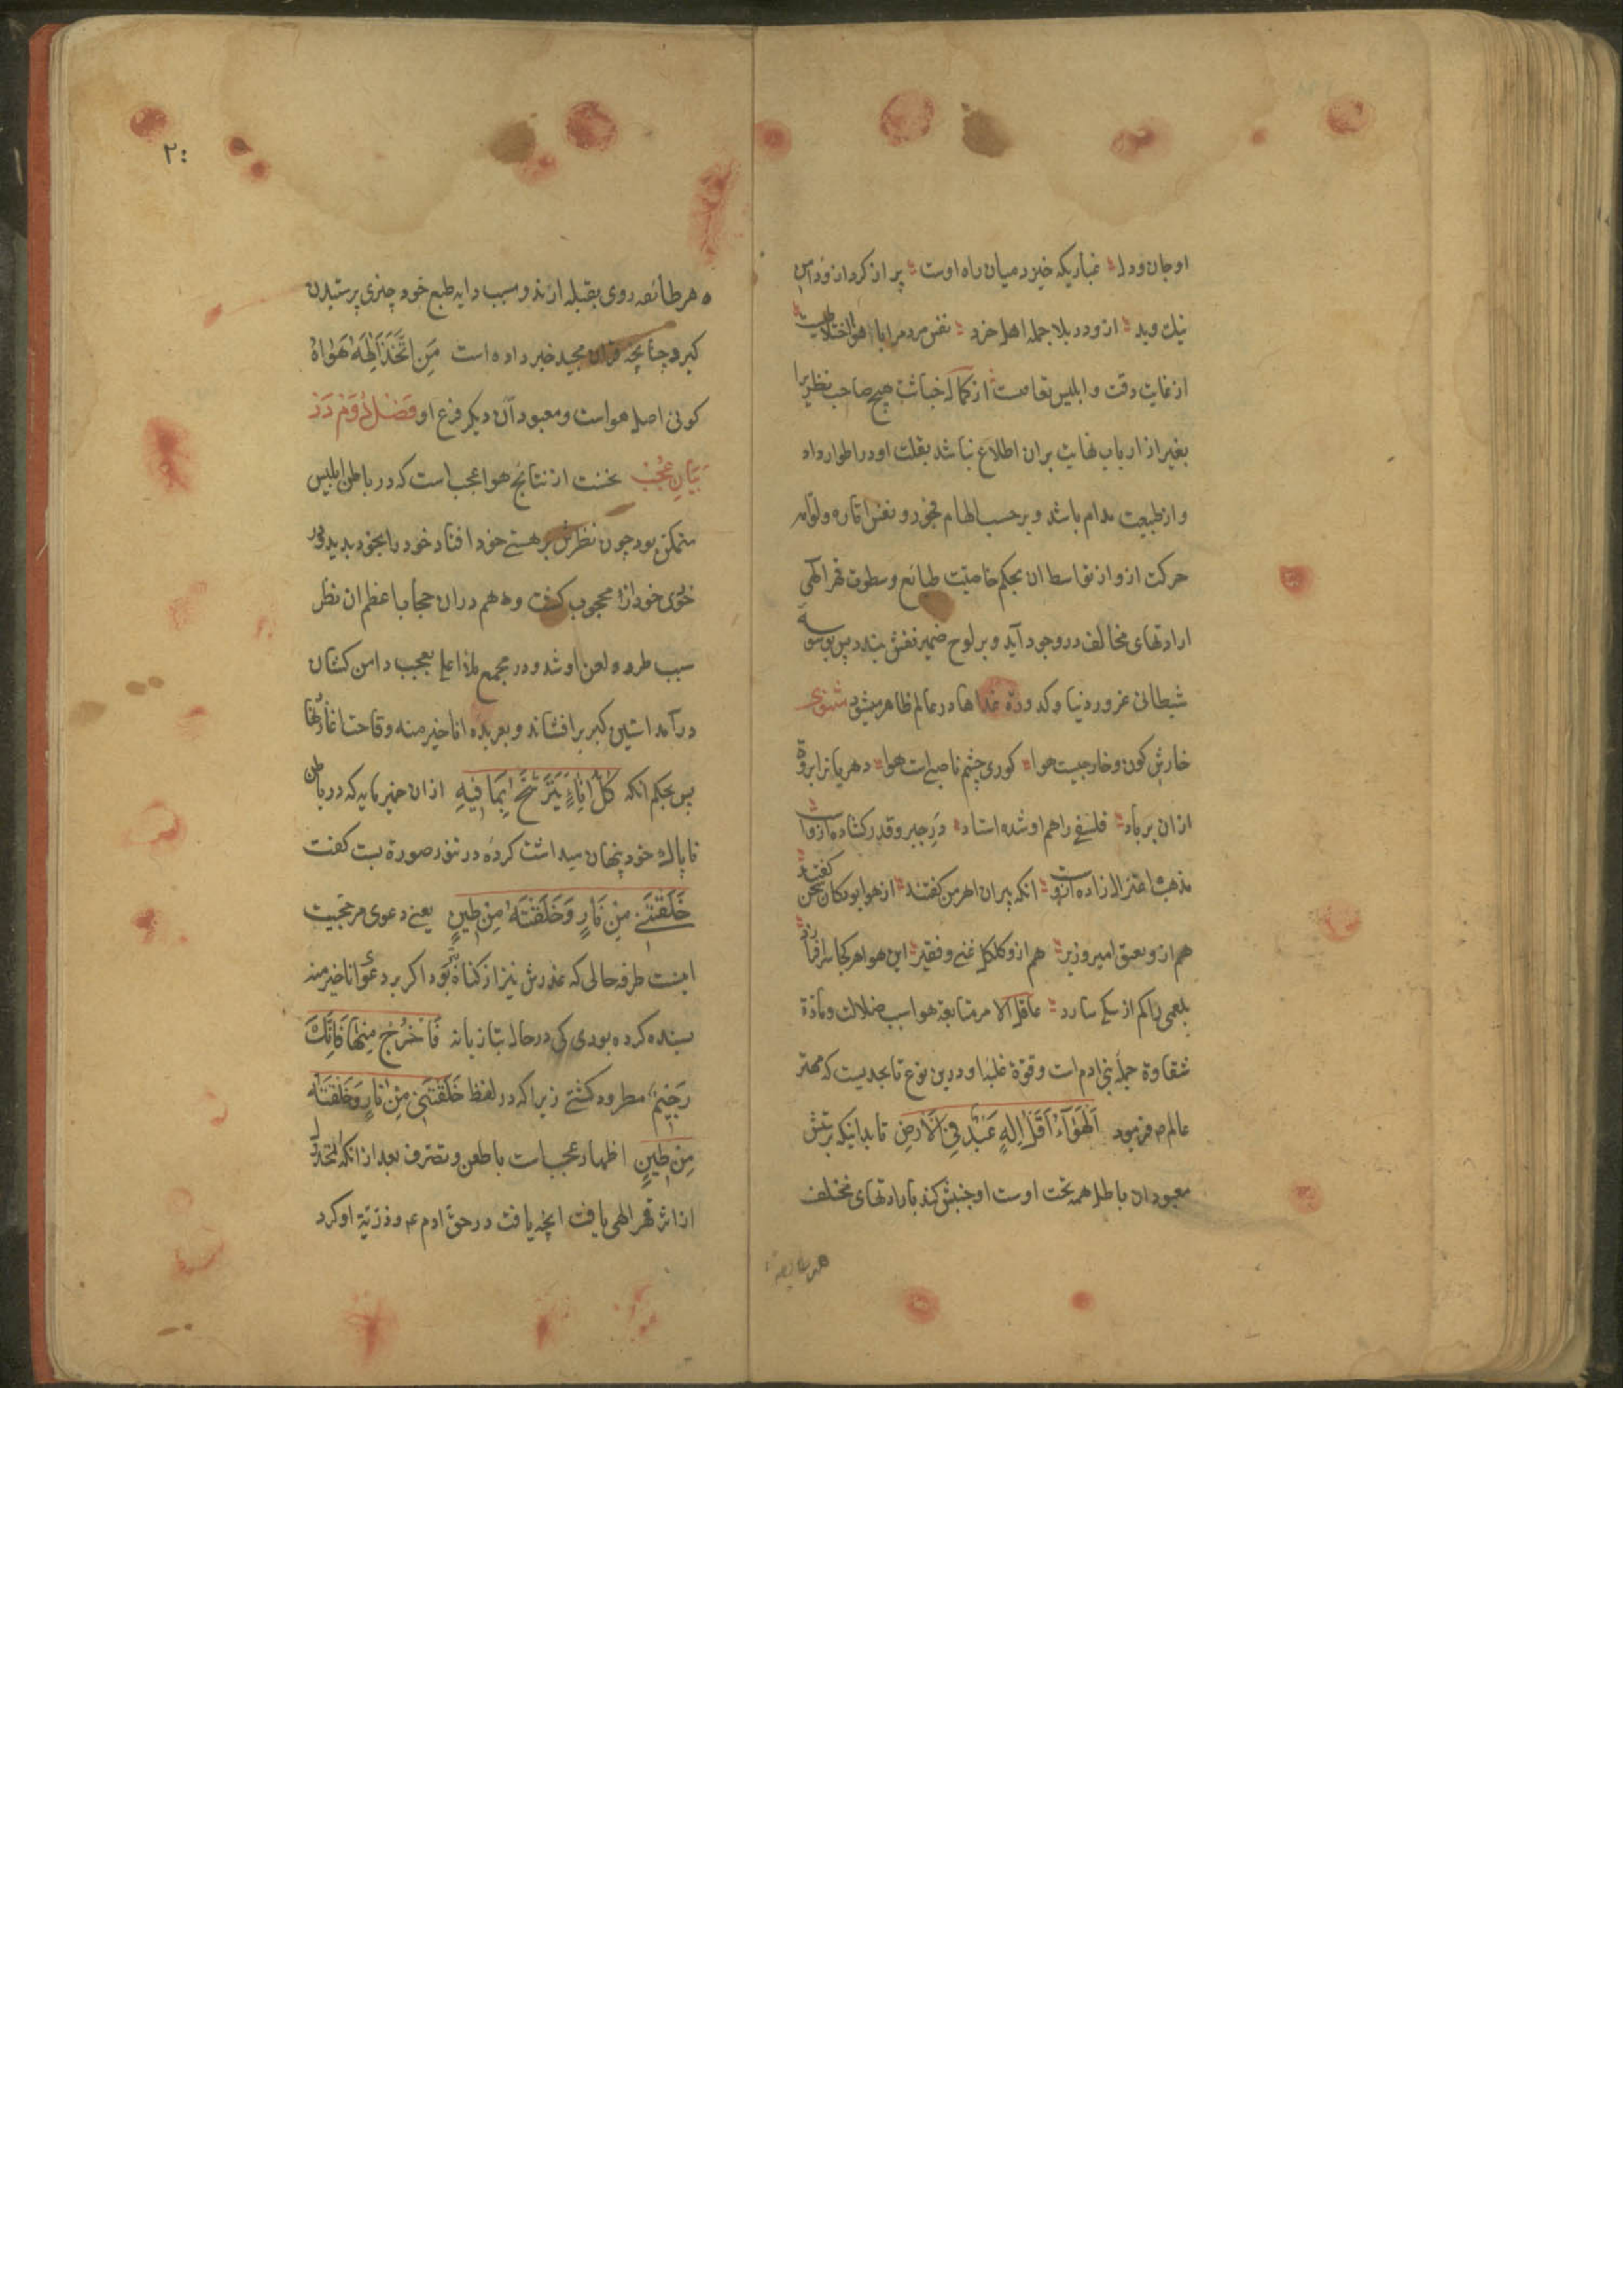 او جان و دل غباریکه خیزد میان راه اوست پر از کرد ازو دامن
نیك و بد ازو در بلا جمله اهل خرد نفس مردم را با هوا
از غایت دقت و ابلیس از کمال خباثت هیچ صاحب نظریرا
بغیر از ارباب نهایت بران اطلاع نباشد بقلت او در اطوار واد
واز طبیعت مدام باشد و برحسب الهام فجور و نفس اماره و لوامه
حرکت از و از تقاسط ان بحکم خاصیت طبائع و سطوت قهر الهی
ارادتهای مخالف در وجود آید و بر لوح ضمیر نقش بندد پس بوسوسهٔ
شیطانی غرور دنیا و کدورة در عالم ظاهر میشود مثنوی
خارش کون و خارجیست هوا کوری چشم ناصبی است هوا دهریانرا بروة
ازان بر باد فلسفی راهم او شده استاد در جبر و قدر کشاده ازواست
مذهب اعتزال زاده ازوست انکه پیران اهرمن کفتند از هوا بو کان سخن کفتند
هم ازو امیر و وزیر هم ازو کلکل غنی و فقیر این هوا هر کجا
بلعمی را کم از سکی سازد عاقل الامر متابعة هوا سبب ضلالت و مادة
شقاوة جملهٔ بنی ادم است و قوة غلبهٔ او درین نوع تا بحدیست که مهتر
عالم ص فرمود اَلْهَوَآءُ اَقَلُّ اِلٰهٍ عُبِدَ فِی الْاَرْضِ تا بدانیکه پرستش
معبودان باطل همه تحت اوست او جنبش کند بارادتهای مختلف
هر طایفه
۲۰
هر طائفه روی بقبله ارند و سبب دایه طبع خود چیزی پرستیدن
کیرد چنانچه قران مجید خبر داده است مَنِ اتَّخَذَ اِلٰهَهُ هَوٰاهُ
کوئی اصل هواست و معبود آن دیکر فرع او فَصْلِ دُوُمْ دَرْ
بَیَانِ عُجُبْ نخست از نتائج هوا عجب است که در باطن ابلیس
متمکن بود چون نظرش بر هستی خود افتاد خود را بخود بدید
خودی خود ازو محجوب کشت و هم دران حجاب اعظم ان نظر
سبب طرد و لعن او شد و در مجمع ملاٴ اعلی بعجب دامن کشان
درآمد استین کبر برافشاند و بعربده انا خیر منه وقاحتها
پس بحکم انکه کُلُّ اِنَاءٍ یَتَرَشَّحُ بِمَا فِیهِ ازان خمیرمایه که در باطن
ناپاك خود پنهان میداشت کرده در تنور صورة بست کفت
خَلَقْتَنِی مِنْ نَارٍ وَخَلَقْتَهُ مِنْ طِینٍ یعنی دعوی مر حجتیست
اینست طرفه حالی که عذرش نیز از کناه بود اکر بر دعوی انا خیر منه
بسنده کرده بودی کی در حال بتازیانه فَاخْرُجْ مِنْهَا فَاِنَّكَ
رَجِیْمٌ مطرود کشتی زیرا که در لفظ خَلَقْتَنِی مِنْ نَارٍ وَخَلَقْتَهُ
مِنْ طِینٍ اظهار عجب است با طعن و تصرف بعد ازانکه
از اثر قهر الهی یافت انچه یافت در حق ادم ع و ذریة او کرد